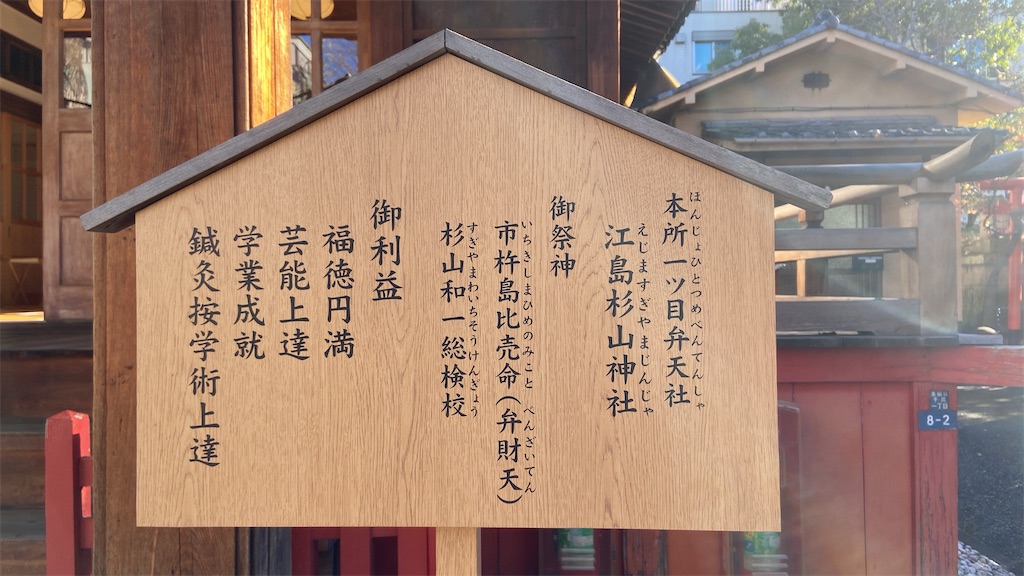 ほんじょひとつめべんてんしゃ
本所一ツ目弁天社
えじますぎやまじんじゃ
江島杉山神社
御祭神
いちきしまひめのみこと べんざいてん
市杵島比売命(弁財天)
すぎやまわいちそうけんぎょう
杉山和一総検校
御利益
福徳円満
芸能上達
学業成就
鍼灸按学術上達
8-2